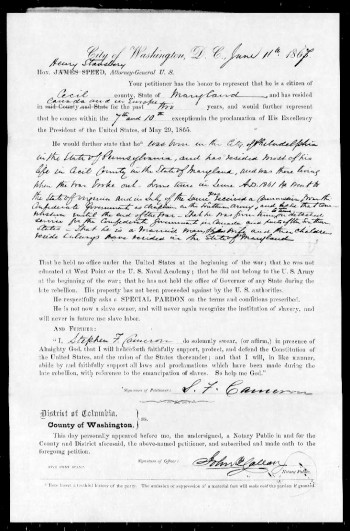 City of Washington, D. C. June 11th 1867
Henry Stansbery
Hon. JAMES SPEED, Attorney-General U. S.
Your petitioner has the honor to represent that he is a citizen of
Cecil county, State of Maryland, and has resided
Canada and in Europe
in said County and State for the past two years, and would further represent
that he comes within the 7th and 10th exceptions in the proclamation of His Excellency
the President of the United States, of May 29, 1865.
He would further state that he was born in the City of Philadelphia
in the State of Pennsylvania, and has resided most of his
life in Cecil County in the State of Maryland, and was there living
when the war broke out. Some time in June A.D. 1861 he went to
the State of Virginia and in July of the same year received a commission from the
Confederate Government as Chaplain in the Confederate Army, and
until the end of the war. That he was for a time on detached
service for the Confederate Government in Canada and
States - That he is a married man his wife and three children
reside in the State of Maryland
That he held no office under the United States at the beginning of the war; that he was not
educated at West Point or the U. S. Naval Academy; that he did not belong to the U. S. Army
at the beginning of the war; that he has not held the office of Governor of any State during
the late rebellion. His property has not been proceeded against by the U. S. authorities.
He respectfully asks a SPECIAL PARDON on the terms and conditions prescribed.
He is not now a slave owner, and will never again recognize the institution of slavery, and
will never in future use slave labor.
AND FURTHER:
"I, Stephen F. Cameron do solemnly swear, (or affirm,) in presence of
Almighty God, that I will henceforth faithfully support, protect, and defend the Constitution of
the United States, and the union of the States thereunder; and that I will, in like manner,
abide by and faithfully support all laws and proclamations which have been made during the
late rebellion, with reference to the emancipation of slaves. So help me God."
Signature of Petitioner: S. F. Cameron
District of Columbia,
County of Washington. ss:
This day personally appeared before me, the undersigned, a Notary Public in and for the
County and District aforesaid, the above-named petitioner, and subscribed and made oath to the
foregoing petition.
Signature of Officer: John
Notary Public